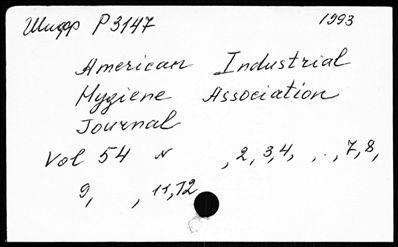 Шифр P3147 1993
American Industrial
Hygiene Association
Journal
Vol 54 N , 2, 3,4, , . , 7, 8,
9, , 11, 12